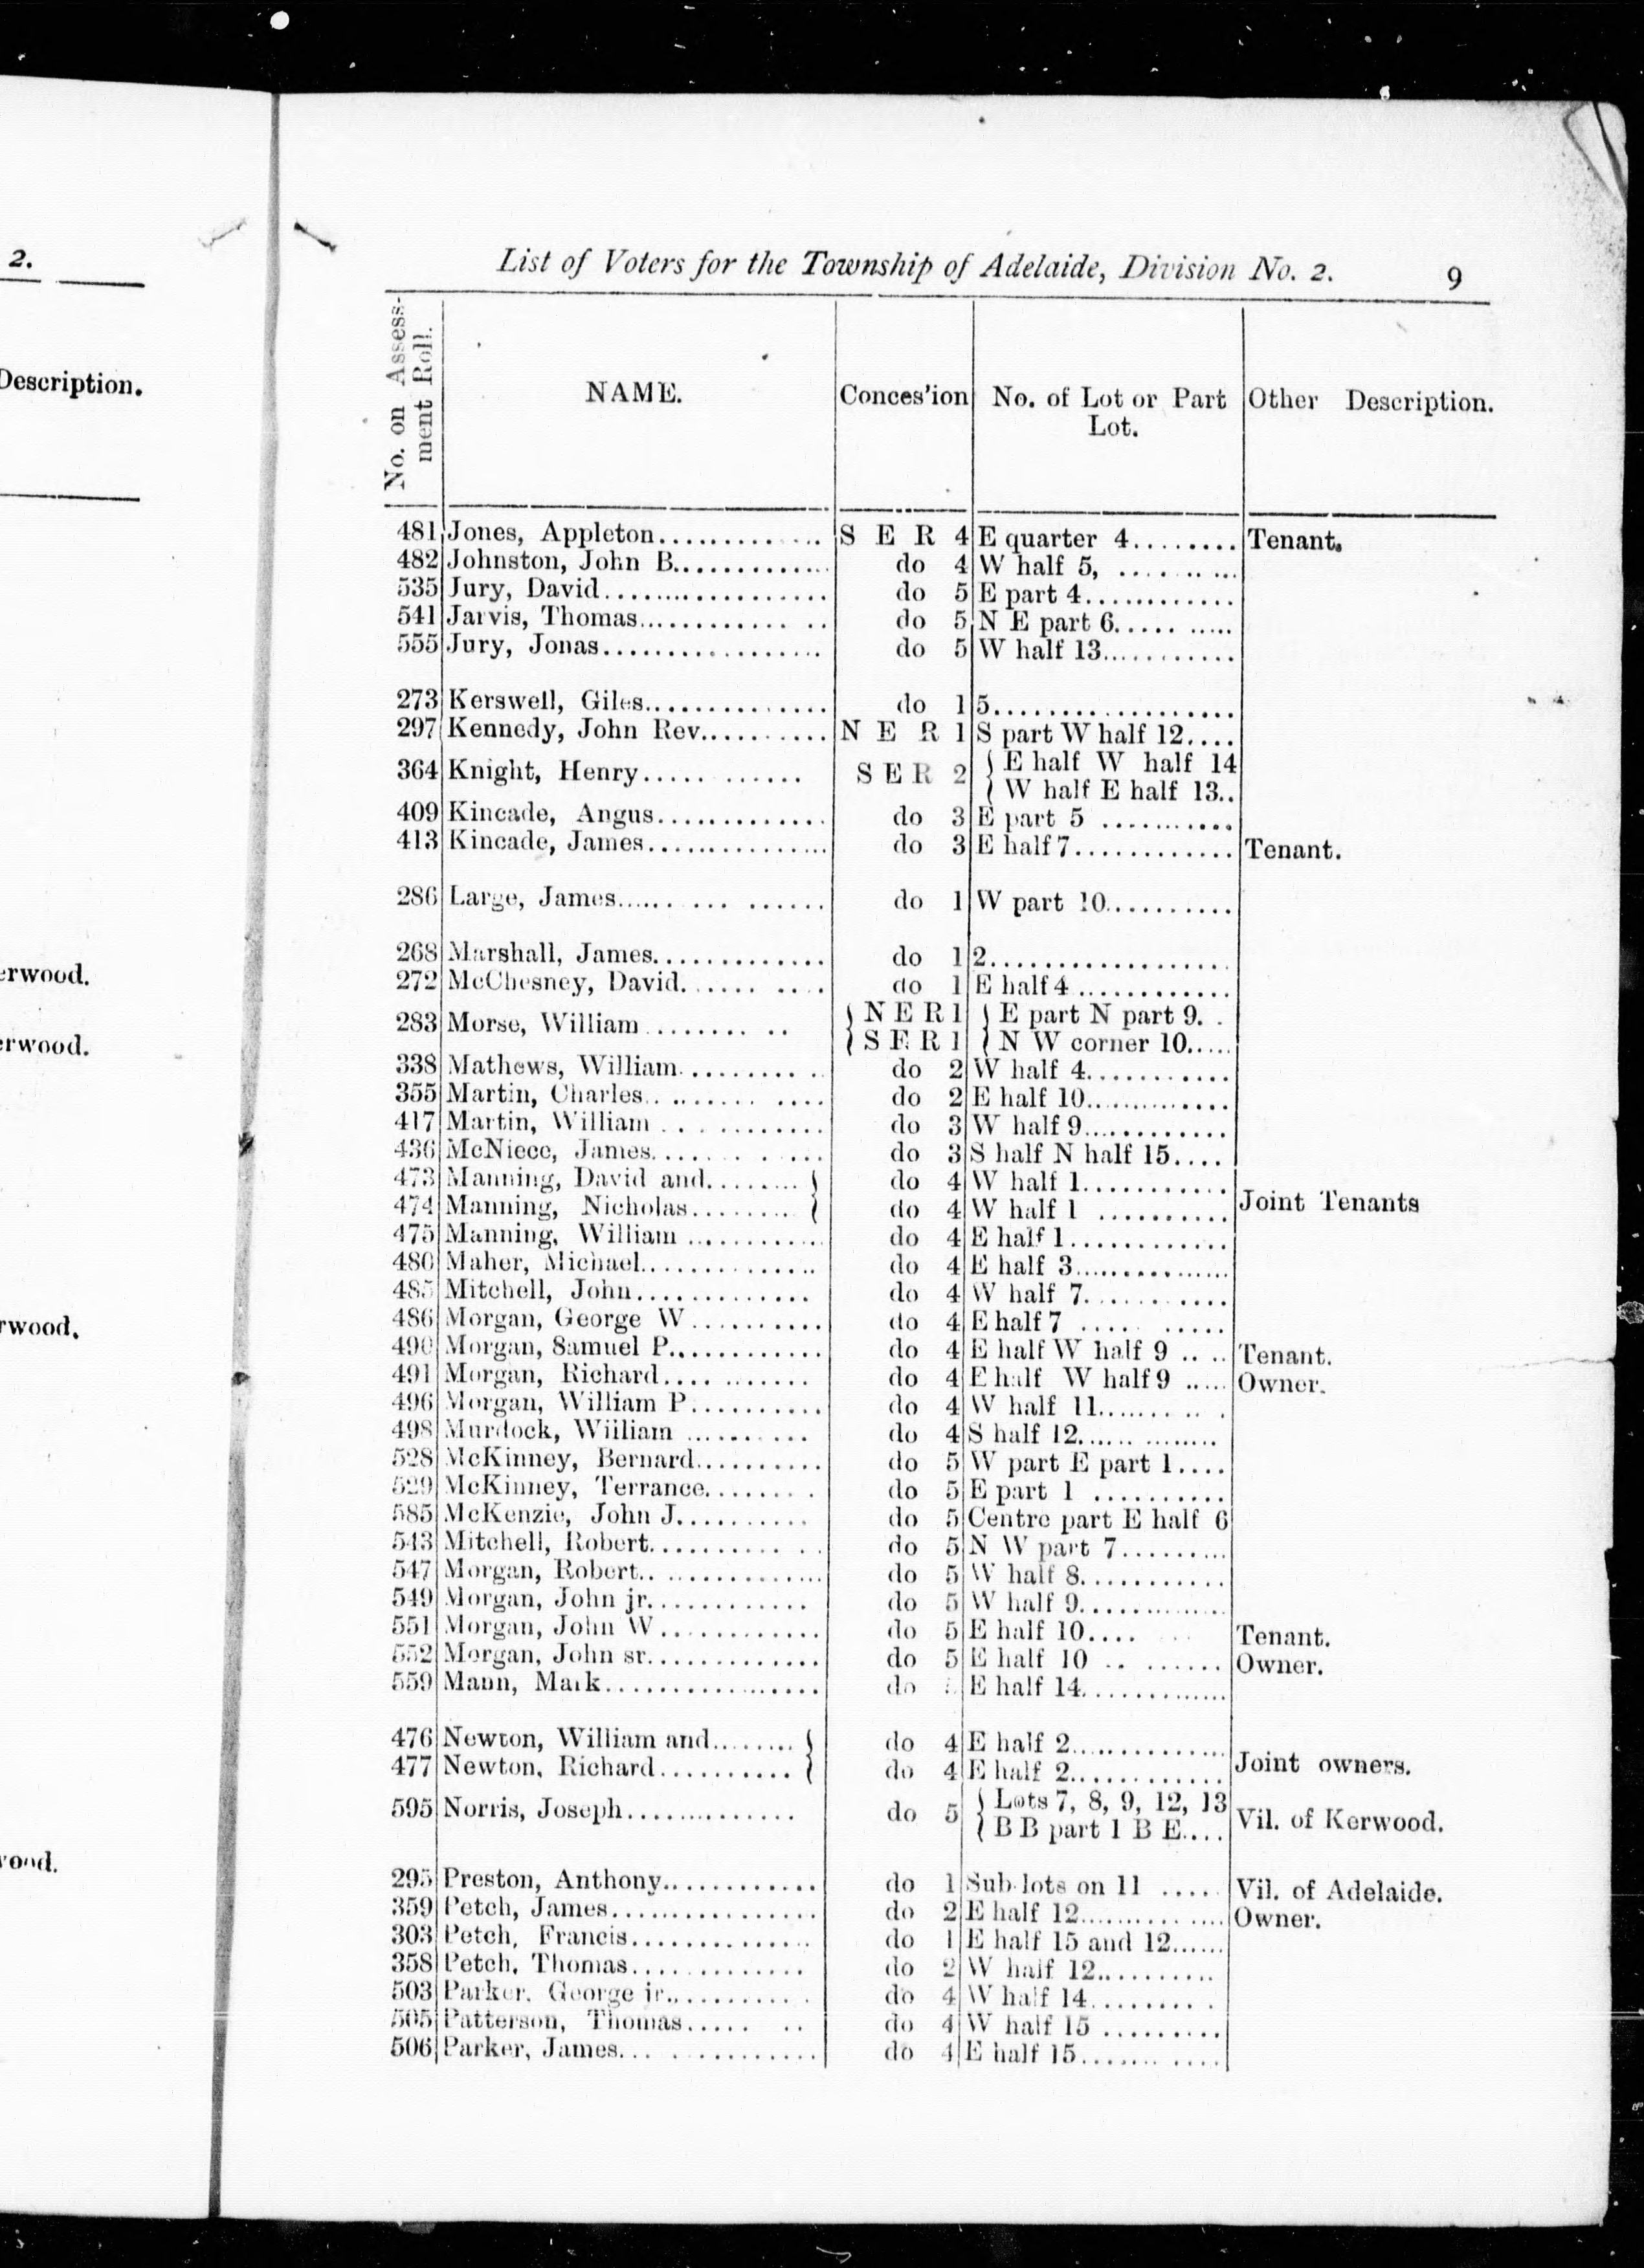 2.
Description.
erwood.
erwood.
rwood.
List of Voters for the Township of Adelaide, Division No. 2. 9
No. on Assess-
ment Roll.
NAME. Conces'ion No. of Lot or Part Other Description.
Lot.
481 Jones, Appleton.............. S E R 4 E quarter 4........ Tenant.
482 Johnston, John B............. do 4 W half 5, ..........
535 Jury, David.................. do 5 E part 4............
541 Jarvis, Thomas............ .. do 5 N E part 6..........
555 Jury, Jonas.................. do 5 W half 13...........
273 Kerswell, Giles............... do 1 5..................
297 Kennedy, John Rev.......... N E R 1 S part W half 12....
364 Knight, Henry............ S E R 2 { E half W half 14
{ W half E half 13..
409 Kincade, Angus............. do 3 E part 5 ...........
413 Kincade, James............... do 3 E half 7............ Tenant.
286 Large, James..... ... ...... do 1 W part 10..........
268 Marshall, James............. do 1 2..................
272 McChesney, David....... .... do 1 E half 4 ............
283 Morse, William ........ .. { N E R 1 { E part N part 9. .
{ S E R 1 { N W corner 10.....
338 Mathews, William......... . do 2 W half 4............
355 Martin, Charles.. ........ .... do 2 E half 10.............
417 Martin, William ............ do 3 W half 9............
436 McNiece, James....... . .... do 3 S half N half 15....
473 Manning, David and........ } do 4 W half 1............
474 Manning, Nicholas......... } do 4 W half 1 .......... Joint Tenants
475 Manning, William ............ do 4 E half 1............
480 Maher, Michael.............. do 4 E half 3..............
485 Mitchell, John............. do 4 W half 7...........
486 Morgan, George W.......... do 4 E half 7 .... .....
490 Morgan, Samuel P............ do 4 E half W half 9 .. .. Tenant.
491 Morgan, Richard.... ....... do 4 E half W half 9 ..... Owner.
496 Morgan, William P.......... do 4 W half 11........ .. .
498 Murdock, William .......... do 4 S half 12..... ........
528 McKinney, Bernard.......... do 5 W part E part 1....
529 McKinney, Terrance........ do 5 E part 1 ..........
585 McKenzie, John J.......... do 5 Centre part E half 6
543 Mitchell, Robert.......... . . do 5 N W part 7.........
547 Morgan, Robert.. .............. do 5 W half 8...........
549 Morgan, John jr............ do 5 W half 9.............
551 Morgan, John W............ do 5 E half 10.... Tenant.
552 Morgan, John sr............. do 5 E half 10 .. ....... Owner.
559 Mann, Mark................. do E half 14.............
476 Newton, William and........ } do 4 E half 2..............
477 Newton, Richard........... } do 4 E half 2............. Joint owners.
595 Norris, Joseph.............. do 5 { Lots 7, 8, 9, 12, 13
{ B B part 1 B E.... Vil. of Kerwood.
295 Preston, Anthony............ do 1 Sub-lots on 11 ..... Vil. of Adelaide.
359 Petch, James................ do 2 E half 12............. Owner.
303 Petch, Francis.............. do 1 E half 15 and 12......
358 Petch, Thomas............. do 2 W half 12..........
503 Parker, George jr............ do 4 W half 14..........
505 Patterson, Thomas..... .. do 4 W half 15 .........
506 Parker, James... ............ do 4 E half 15....... ....